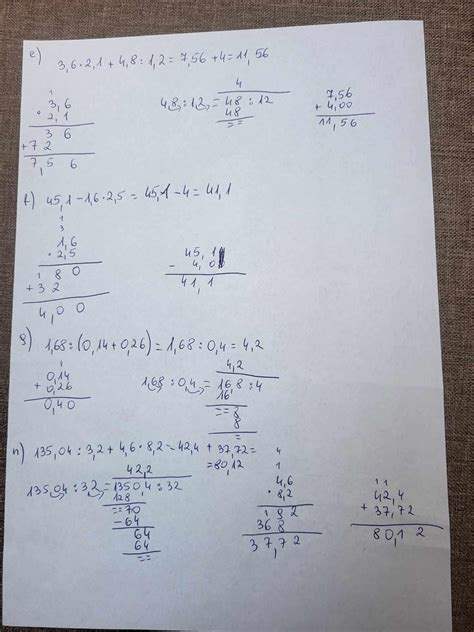 e)
3,6 · 2,1 + 4,8 : 1,2 = 7,56 + 4 = 11,56
1
3,6
· 2,1
3 6
+ 7 2
7,5 6
4
4,8 : 1,2 = 48 : 12
48
= =
7,56
+ 4,00
11,56
f) 45,1 - 1,6 · 2,5 = 45,1 - 4 = 41,1
1
3
1,6
· 2,5
1 8 0
+ 3 2
4,0 0
45,1
- 4,0
41,1
g) 1,68 : (0,14 + 0,26) = 1,68 : 0,4 = 4,2
1
0,14
+ 0,26
0,40
4,2
1,68 : 0,4 = 16,8 : 4
16
= = 8
8
=
n) 135,04 : 3,2 + 4,6 · 8,2 = 42,4 + 37,72 =
= 80,12
42,2
135,04 : 3,2 = 1350,4 : 32
128
= = 70
- 64
64
64
= =
4
1
4,6
· 8,2
1 8 2
3 6 8
3 7,7 2
1 1
42,4
+ 37,72
80,1 2